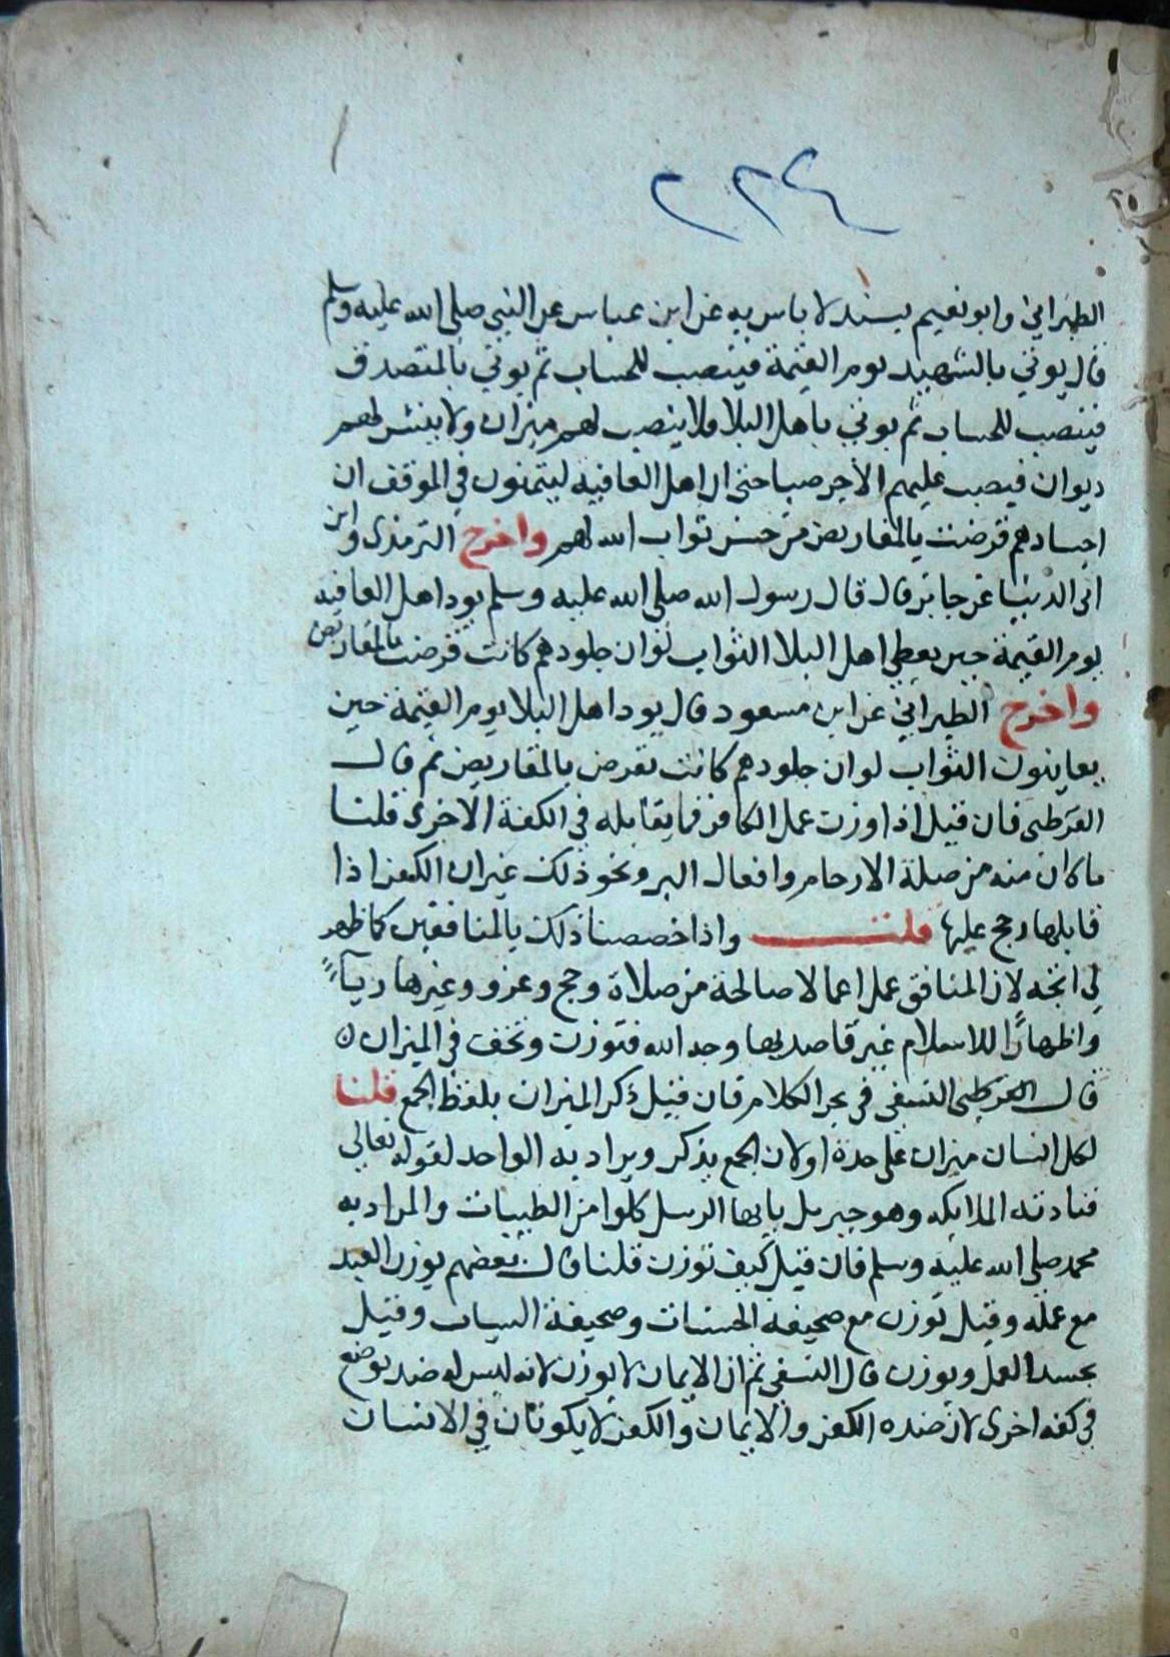 ٢٢٤
الطبراني وابو نعيم بسند لا باس به عن ابن عباس عن النبي صلى الله عليه وسلم
قال يوتي بالشهيد يوم القيمة فينصب للحساب ثم يوتي بالمتصدق
فينصب للحساب ثم يوتي باهل البلا ولا ينصب لهم ميزان ولا ينشر لهم
ديوان فيصب عليهم الاجر صبا حتى ان اهل العافيه ليتمنون في الموقف ان
اجسادهم قرضت بالمقاريض من حسن ثواب الله لهم واخرج الترمذى وابن
ابى الدنيا عن جابر قال قال رسول الله صلى الله عليه وسلم يود اهل العافيه
يوم القيمة حين يعطى اهل البلا الثواب لو ان جلودهم كانت قرضت بالمقاريض
واخرج الطبراني عن ابن مسعود قال يود اهل البلا يوم القيمة حين
يعاينون الثواب لو ان جلودهم كانت تقرض بالمقاريض ثم قال
القرطبى فان قيل اذا وزن عمل الكافر فما يقابله في الكفة الاخرى قلنا
ما كان منه من صلة الارحام وافعال البر ونحو ذلك غير ان الكفر اذا
قابلها رجح عليها قلت واذا خصصنا ذلك بالمنافقين كما ظهر
لي اتجه لان المنافق عمل اعمالا صالحة من صلاة وحج وغزو وغيرها رياً
واظهارًا للاسلام غير قاصد بها وجه الله فتوزن وتخف في الميزان ه
قال القرطبى النسفى في بحر الكلام فان قيل ذكر الميزان بلفظ الجمع قلنا
لكل انسان ميزان على حدة او لان الجمع يذكر ويراد به الواحد لقوله تعالى
فنادته الملائكه وهو جبريل يايها الرسل كلوا من الطيبات والمراد به
محمد صلى الله عليه وسلم فان قيل كيف توزن قلنا قال بعضهم يوزن العبد
مع عمله وقيل توزن مع صحيفة الحسنات وصحيفة السيات وقيل
يجسد العمل ويوزن قال النسفى ثم ان الايمان لا يوزن لانه ليس له ضد يوضع
في كفه اخرى لان ضده الكفر والايمان والكفر لا يكونان في الانسان